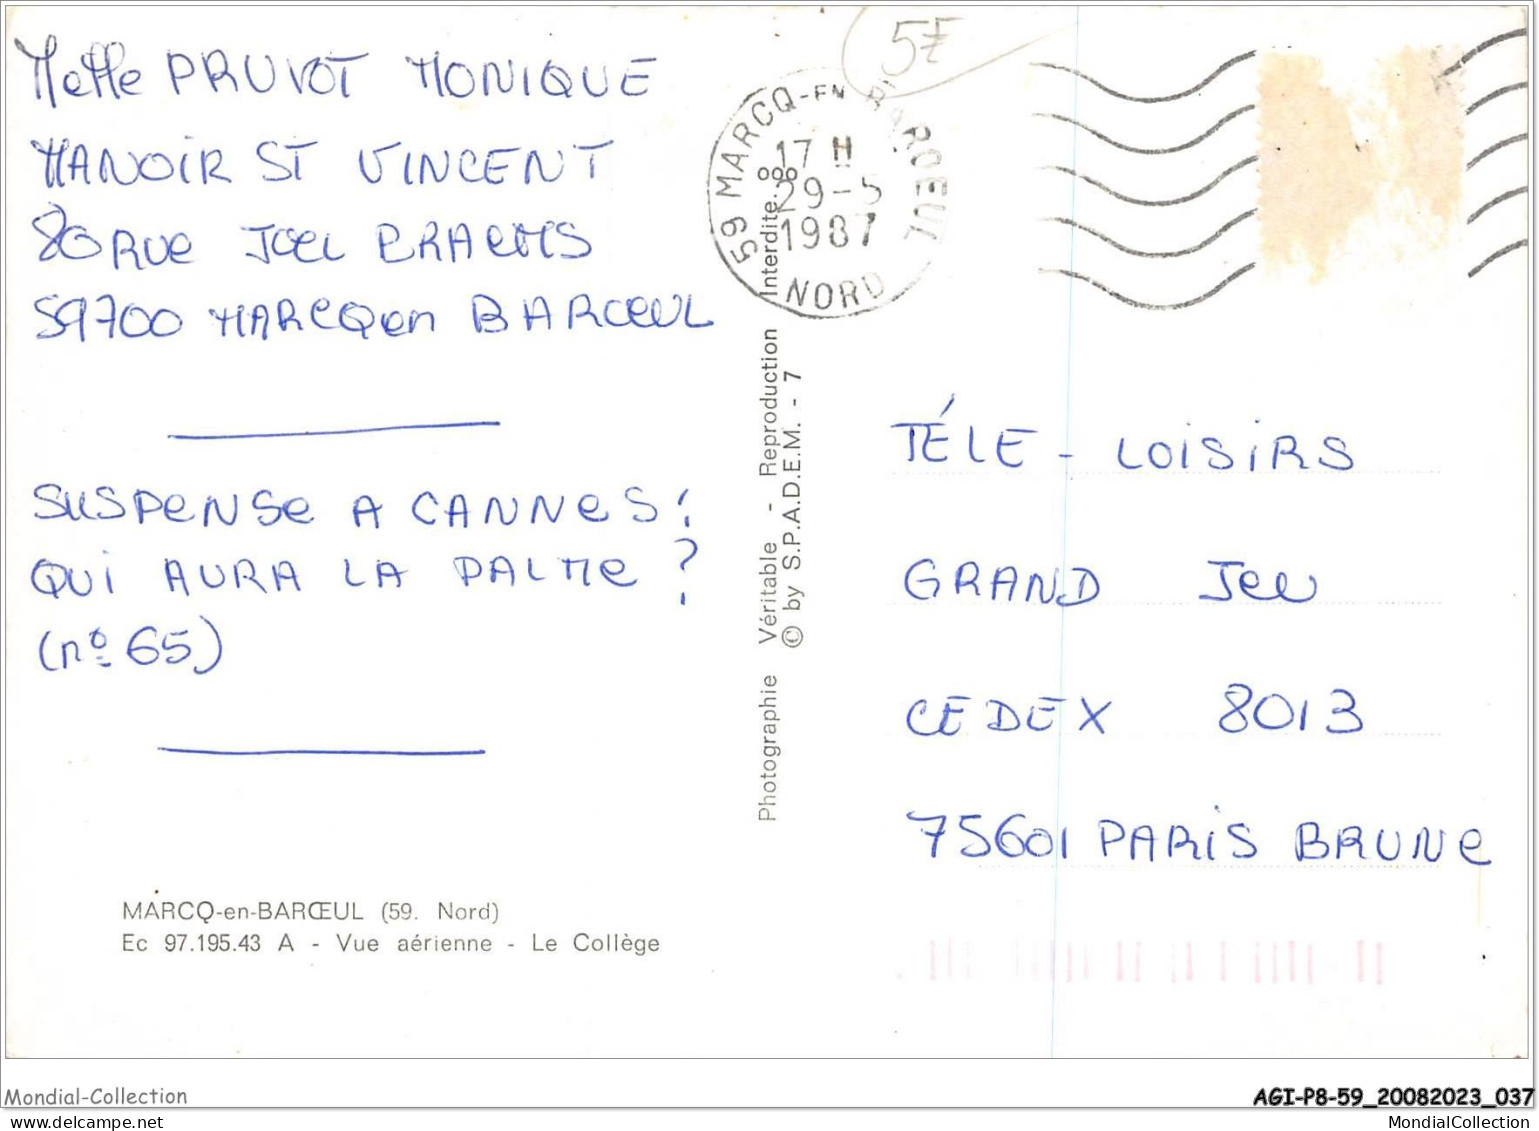 Melle PRUVOT MONIQUE
MANOIR ST VINCENT
80 RUE JOEL
59700 MARCQ en BAROEUL
SUSPENSE A CANNES!
QUI AURA LA PALME?
(nº 65)
MARCQ-en-BARŒUL (59. Nord)
Ec 97.195.43 A - Vue aérienne - Le Collège
Photographie Véritable - Reproduction Interdite.
© by S.P.A.D.E.M. - 7
59 MARCQ-EN BAROEUL
17 H
29-5
1987
NORD
5F
TÉLE - LOISIRS
GRAND JEU
CEDEX 8013
75601 PARIS BRUNE
Mondial-Collection
AGI-P8-59_20082023_037
MondialCollection